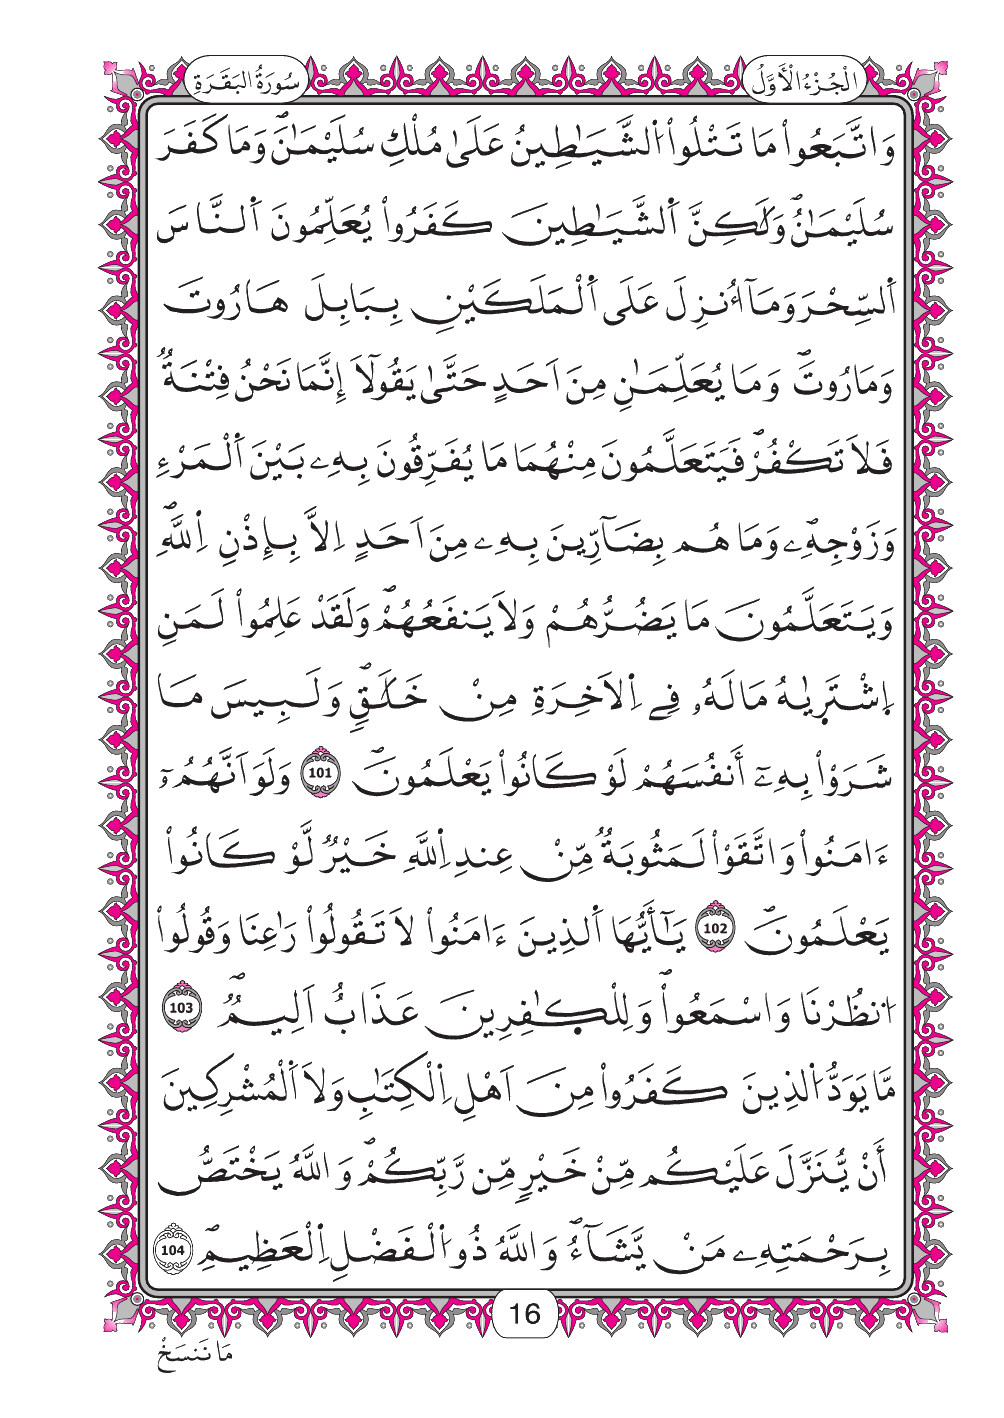 الْجُزْءُ الْأَوَّلُ
سُورَةُ الْبَقَرَةِ
وَاتَّبَعُواْ مَا تَتْلُواْ اُ۬لشَّيَٰطِينُ عَلَىٰ مُلْكِ سُلَيْمَٰنَۖ وَمَا كَفَرَ
سُلَيْمَٰنُۖ وَلَٰكِنَّ اَ۬لشَّيَٰطِينَ كَفَرُواْ يُعَلِّمُونَ اَ۬لنَّاسَ
اَ۬لسِّحْرَ وَمَآ أُنزِلَ عَلَى اَ۬لْمَلَكَيْنِ بِبَابِلَ هَارُوتَ
وَمَارُوتَۖ وَمَا يُعَلِّمَٰنِ مِنَ اَحَدٍ حَتَّىٰ يَقُولَآ إِنَّمَا نَحْنُ فِتْنَةٌ
فَلَا تَكْفُرْۖ فَيَتَعَلَّمُونَ مِنْهُمَا مَا يُفَرِّقُونَ بِهِۦ بَيْنَ اَ۬لْمَرْءِ
وَزَوْجِهِۦۖ وَمَا هُم بِضَآرِّينَ بِهِۦ مِنَ اَحَدٍ اِلَّا بِإِذْنِ اِ۬للَّهِۖ
وَيَتَعَلَّمُونَ مَا يَضُرُّهُمْ وَلَا يَنفَعُهُمْۖ وَلَقَدْ عَلِمُواْ لَمَنِ
اِ۪شْتَر۪ىٰهُ مَا لَهُۥ فِے اِ۬لَاخِرَةِ مِنْ خَلَٰقٍۖ وَلَبِيسَ مَا
شَرَوْاْ بِهِۦٓ أَنفُسَهُمْ لَوْ كَانُواْ يَعْلَمُونَۖ 101 وَلَوَ اَنَّهُمُۥٓ
ءَامَنُواْ وَاتَّقَوْاْ لَمَثُوبَةٌ مِّنْ عِندِ اِ۬للَّهِ خَيْرٌ لَّوْ كَانُواْ
يَعْلَمُونَۖ 102 يَٰٓأَيُّهَا اَ۬لذِينَ ءَامَنُواْ لَا تَقُولُواْ رَٰعِنَا وَقُولُواْ
اُ۟نظُرْنَا وَاسْمَعُواْۖ وَلِلْكٰ۪فِرِينَ عَذَابٌ اَلِيمٌۖ 103
مَّا يَوَدُّ اُ۬لذِينَ كَفَرُواْ مِنَ اَهْلِ اِ۬لْكِتَٰبِ وَلَا اَ۬لْمُشْرِكِينَ
أَنْ يُّنَزَّلَ عَلَيْكُم مِّنْ خَيْرٍ مِّن رَّبِّكُمْۖ وَاللَّهُ يَخْتَصُّ
بِرَحْمَتِهِۦ مَنْ يَّشَآءُۖ وَاللَّهُ ذُو اُ۬لْفَضْلِ اِ۬لْعَظِيمِۖ 104
16
مَا نَنسَخْ